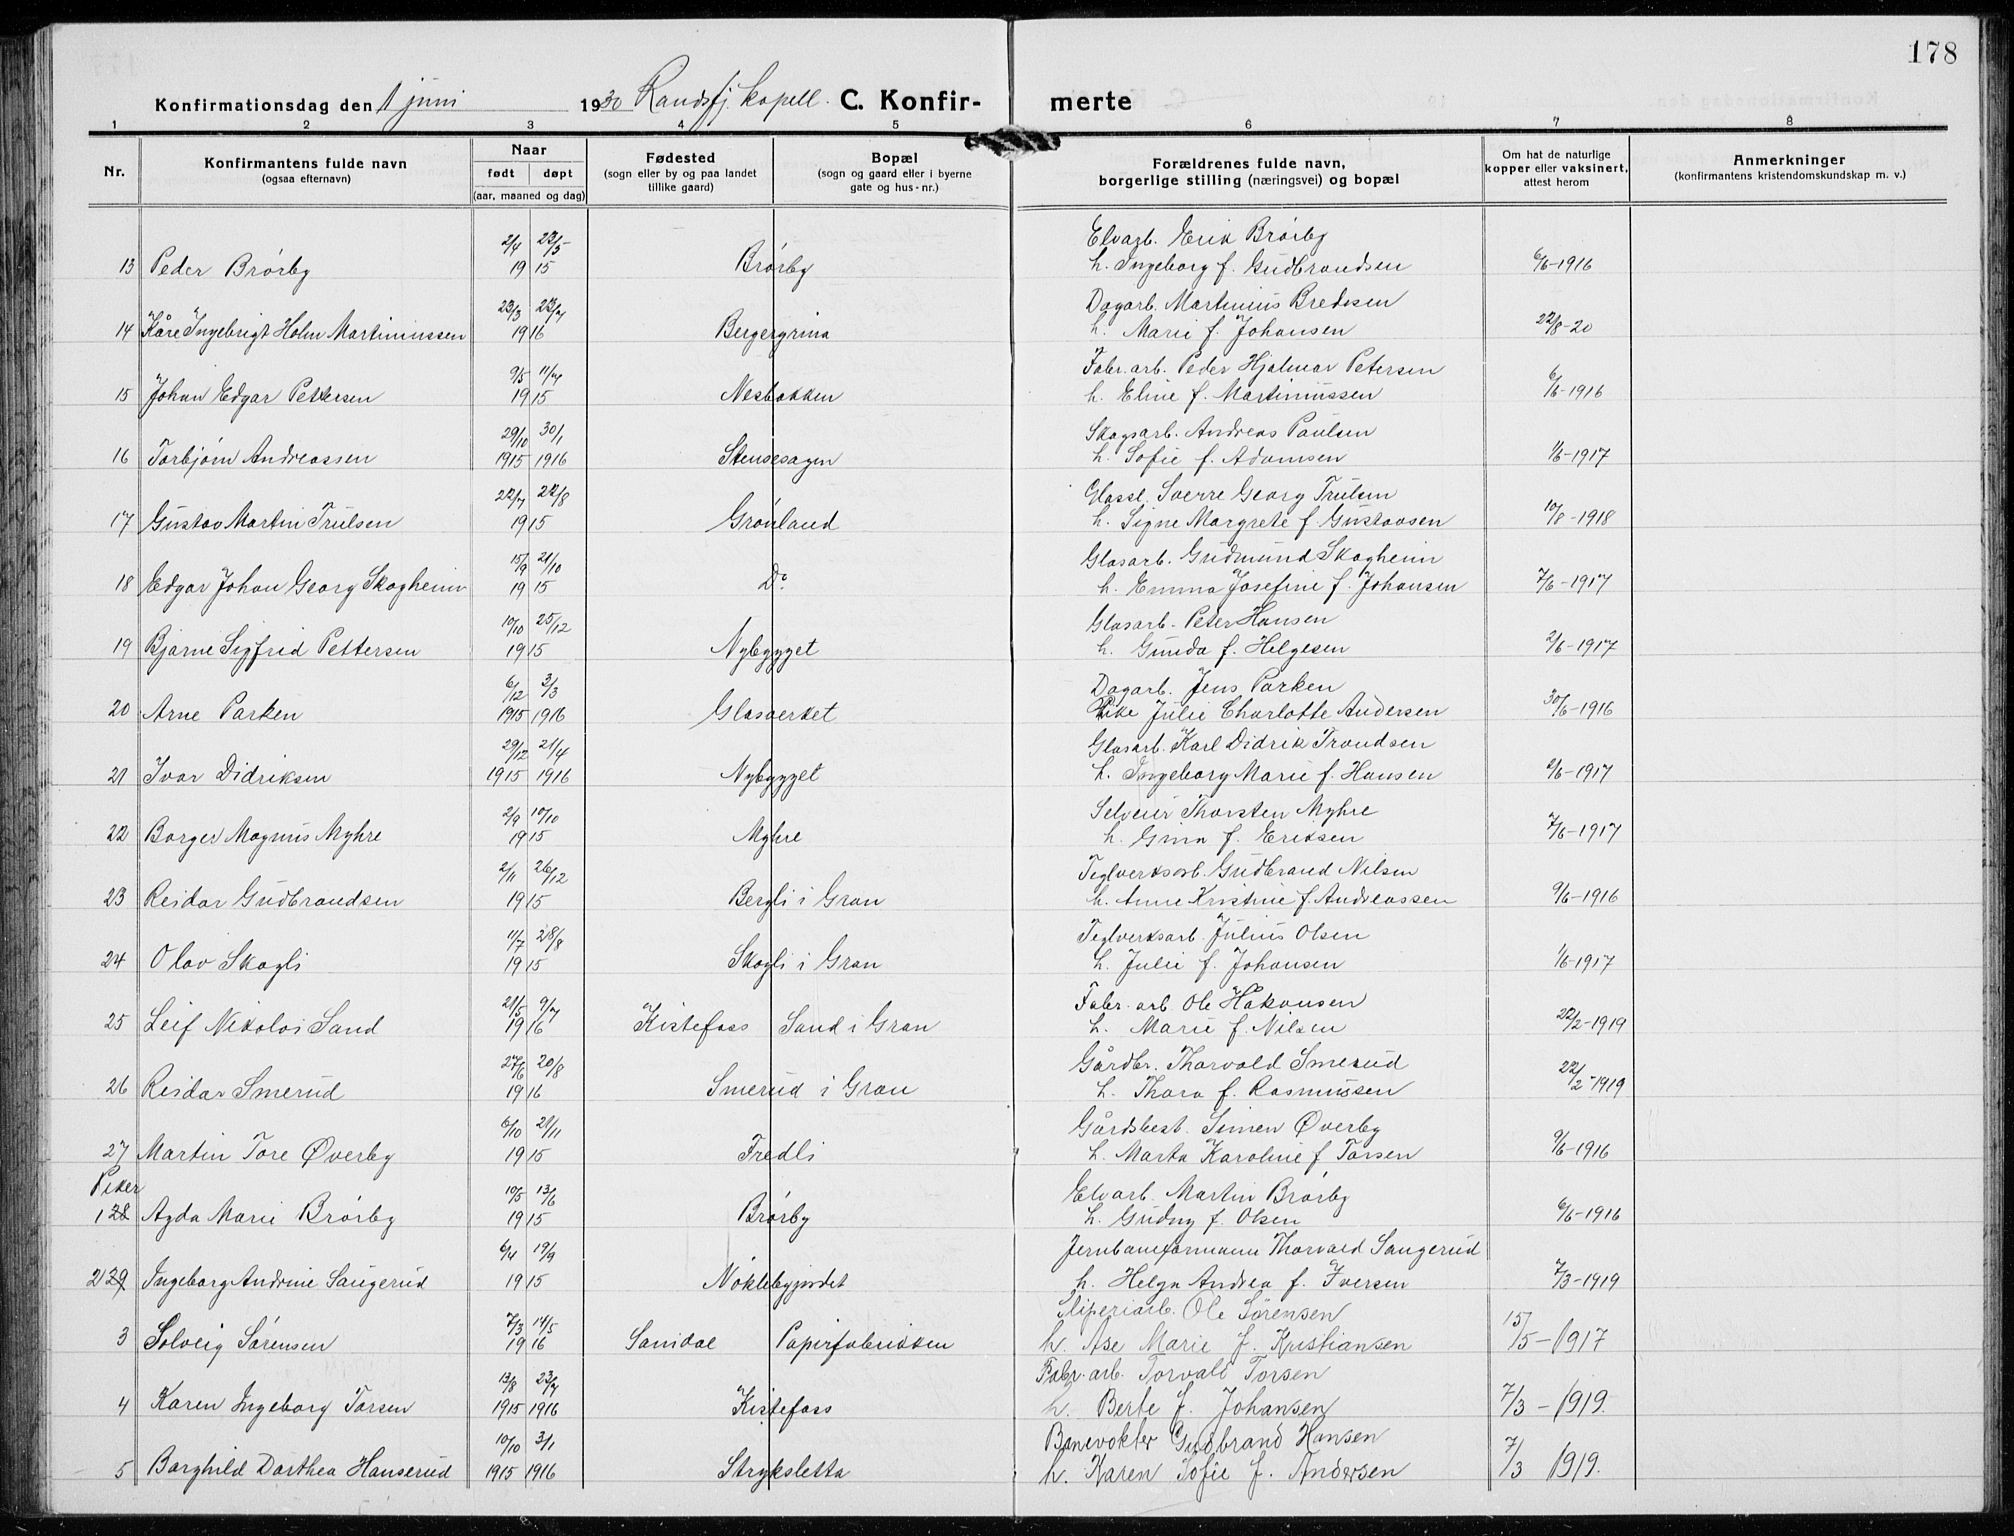 178
Konfirmationsdag den 1 juni 1930 Randsfj. kapell. C. Konfir- merte
1 2 3 4 5 6 7 8
Nr.
Konfirmantens fulde navn
(ogsaa efternavn)
Naar
født døpt
(aar, maaned og dag)
Fødested
(sogn eller by og paa landet
tillike gaard)
Bopæl
(sogn og gaard eller i byerne
gate og hus-nr.)
Forældrenes fulde navn,
borgerlige stilling (næringsvei) og bopæl
Om hat de naturlige
kopper eller vaksinert,
attest herom
Anmerkninger
(konfirmantens kristendomskundskap m. v.)
2/4 23/5 Elvarb. Erik Brørby
13 Peder Brørby 1915 Brørby h. Ingeborg f. Gudbrandsen 6/6-1916
23/3 23/7 Dagarb. Martinius Bredesen
14 Kåre Ingebrigt Holm Martiniussen 1916 Bergergrina h. Marie f. Johansen 22/8-20
9/5 11/7 Fabr. arb. Peder Hjalmar Petersen
15 Johan Edgar Pettersen 1915 Nesbakken h. Eline f. Martiniussen 6/6-1916
29/10 30/1 Skogsarb. Andreas Paulsen
16 Torbjørn Andreassen 1915 1916 Stensesagen h. Sofie f. Adamsen 1/6-1917
22/7 22/8 Glassl. Sverre Georg Trulsen
17 Gustav Martin Trulsen 1915 Grønland h. Signe Margrete f. Gustavsen 10/8-1918
15/9 21/10 Glasarb. Gudmund Skogheim
18 Edgar Johan Georg Skogheim 1915 Do. h. Emma Josefine f. Johansen 7/6-1917
10/10 25/12 Glasarb. Peter Hansen
19 Bjarne Sigfred Pettersen 1915 Nybygget h. Gunda f. Helgesen 2/6-1917
6/12 3/3 Dagarb. Jens Parken
20 Arne Parken 1915 1916 Glasverket Pike Julie Charlotte Andersen 30/6-1916
29/12 21/4 Glasarb. Karl Didrik Trondsen
21 Ivar Didriksen 1915 1916 Nybygget h. Ingeborg Marie f. Hansen 6/6-1917
2/9 10/10 Selveier Thorsten Myhre
22 Borger Magnus Myhre 1915 Myhre h. Gina f. Eriksen 7/6-1917
2/11 26/12 Teglverksarb. Gudbrand Nilsen
23 Reidar Gudbrandsen 1915 Bergli i Gran h. Anne Kristine f. Andreassen 9/6-1916
11/7 28/8 Teglverksarb. Julius Olsen
24 Olav Skogli 1915 Skogli i Gran h. Julie f. Johansen 1/6-1917
21/5 9/7 Fabr. arb. Ole Håkonsen
25 Leif Nikolai Sand 1916 Kistefoss Sand i Gran h. Marie f. Nilsen 22/2-1919
27/6 20/8 Gårdbr. Thorvald Smerud
26 Reidar Smerud 1916 Smerud i Gran h. Thora f. Rasmussen 22/2-1919
6/10 21/11 Gårdsbest. Simen Øverby
27 Martin Tore Øverby 1915 Fredli h. Marta Karoline f. Torsen 9/6-1916
Piker 10/5 13/6 Elvarb. Martin Brørby
1 28 Agda Marie Brørby 1915 Brørby h. Gudny f. Olsen 6/6-1916
6/4 19/9 Jernbaneformann Thorvald Saugerud
2 29 Ingeborg Andrine Saugerud 1915 Nøklebyjordet h. Helga Andrea f. Iversen 7/3-1919
7/3 14/5 Sliperiarb. Ole Sørensen
3 Solveig Sørensen 1916 Samdal Papirfabrikken h. Åse Marie f. Kristiansen 15/5-1917
13/8 23/7 Fabr. arb. Torvald Torsen
4 Karen Ingeborg Torsen 1915 1916 Kistefoss h. Berte f. Johansen 7/3-1919.
10/10 3/1 Banevokter Gudbrand Hansen
5 Borghild Dorthea Hanserud 1915 1916 Stryksletta h. Karen Sofie f. Andersen 7/3 1919.